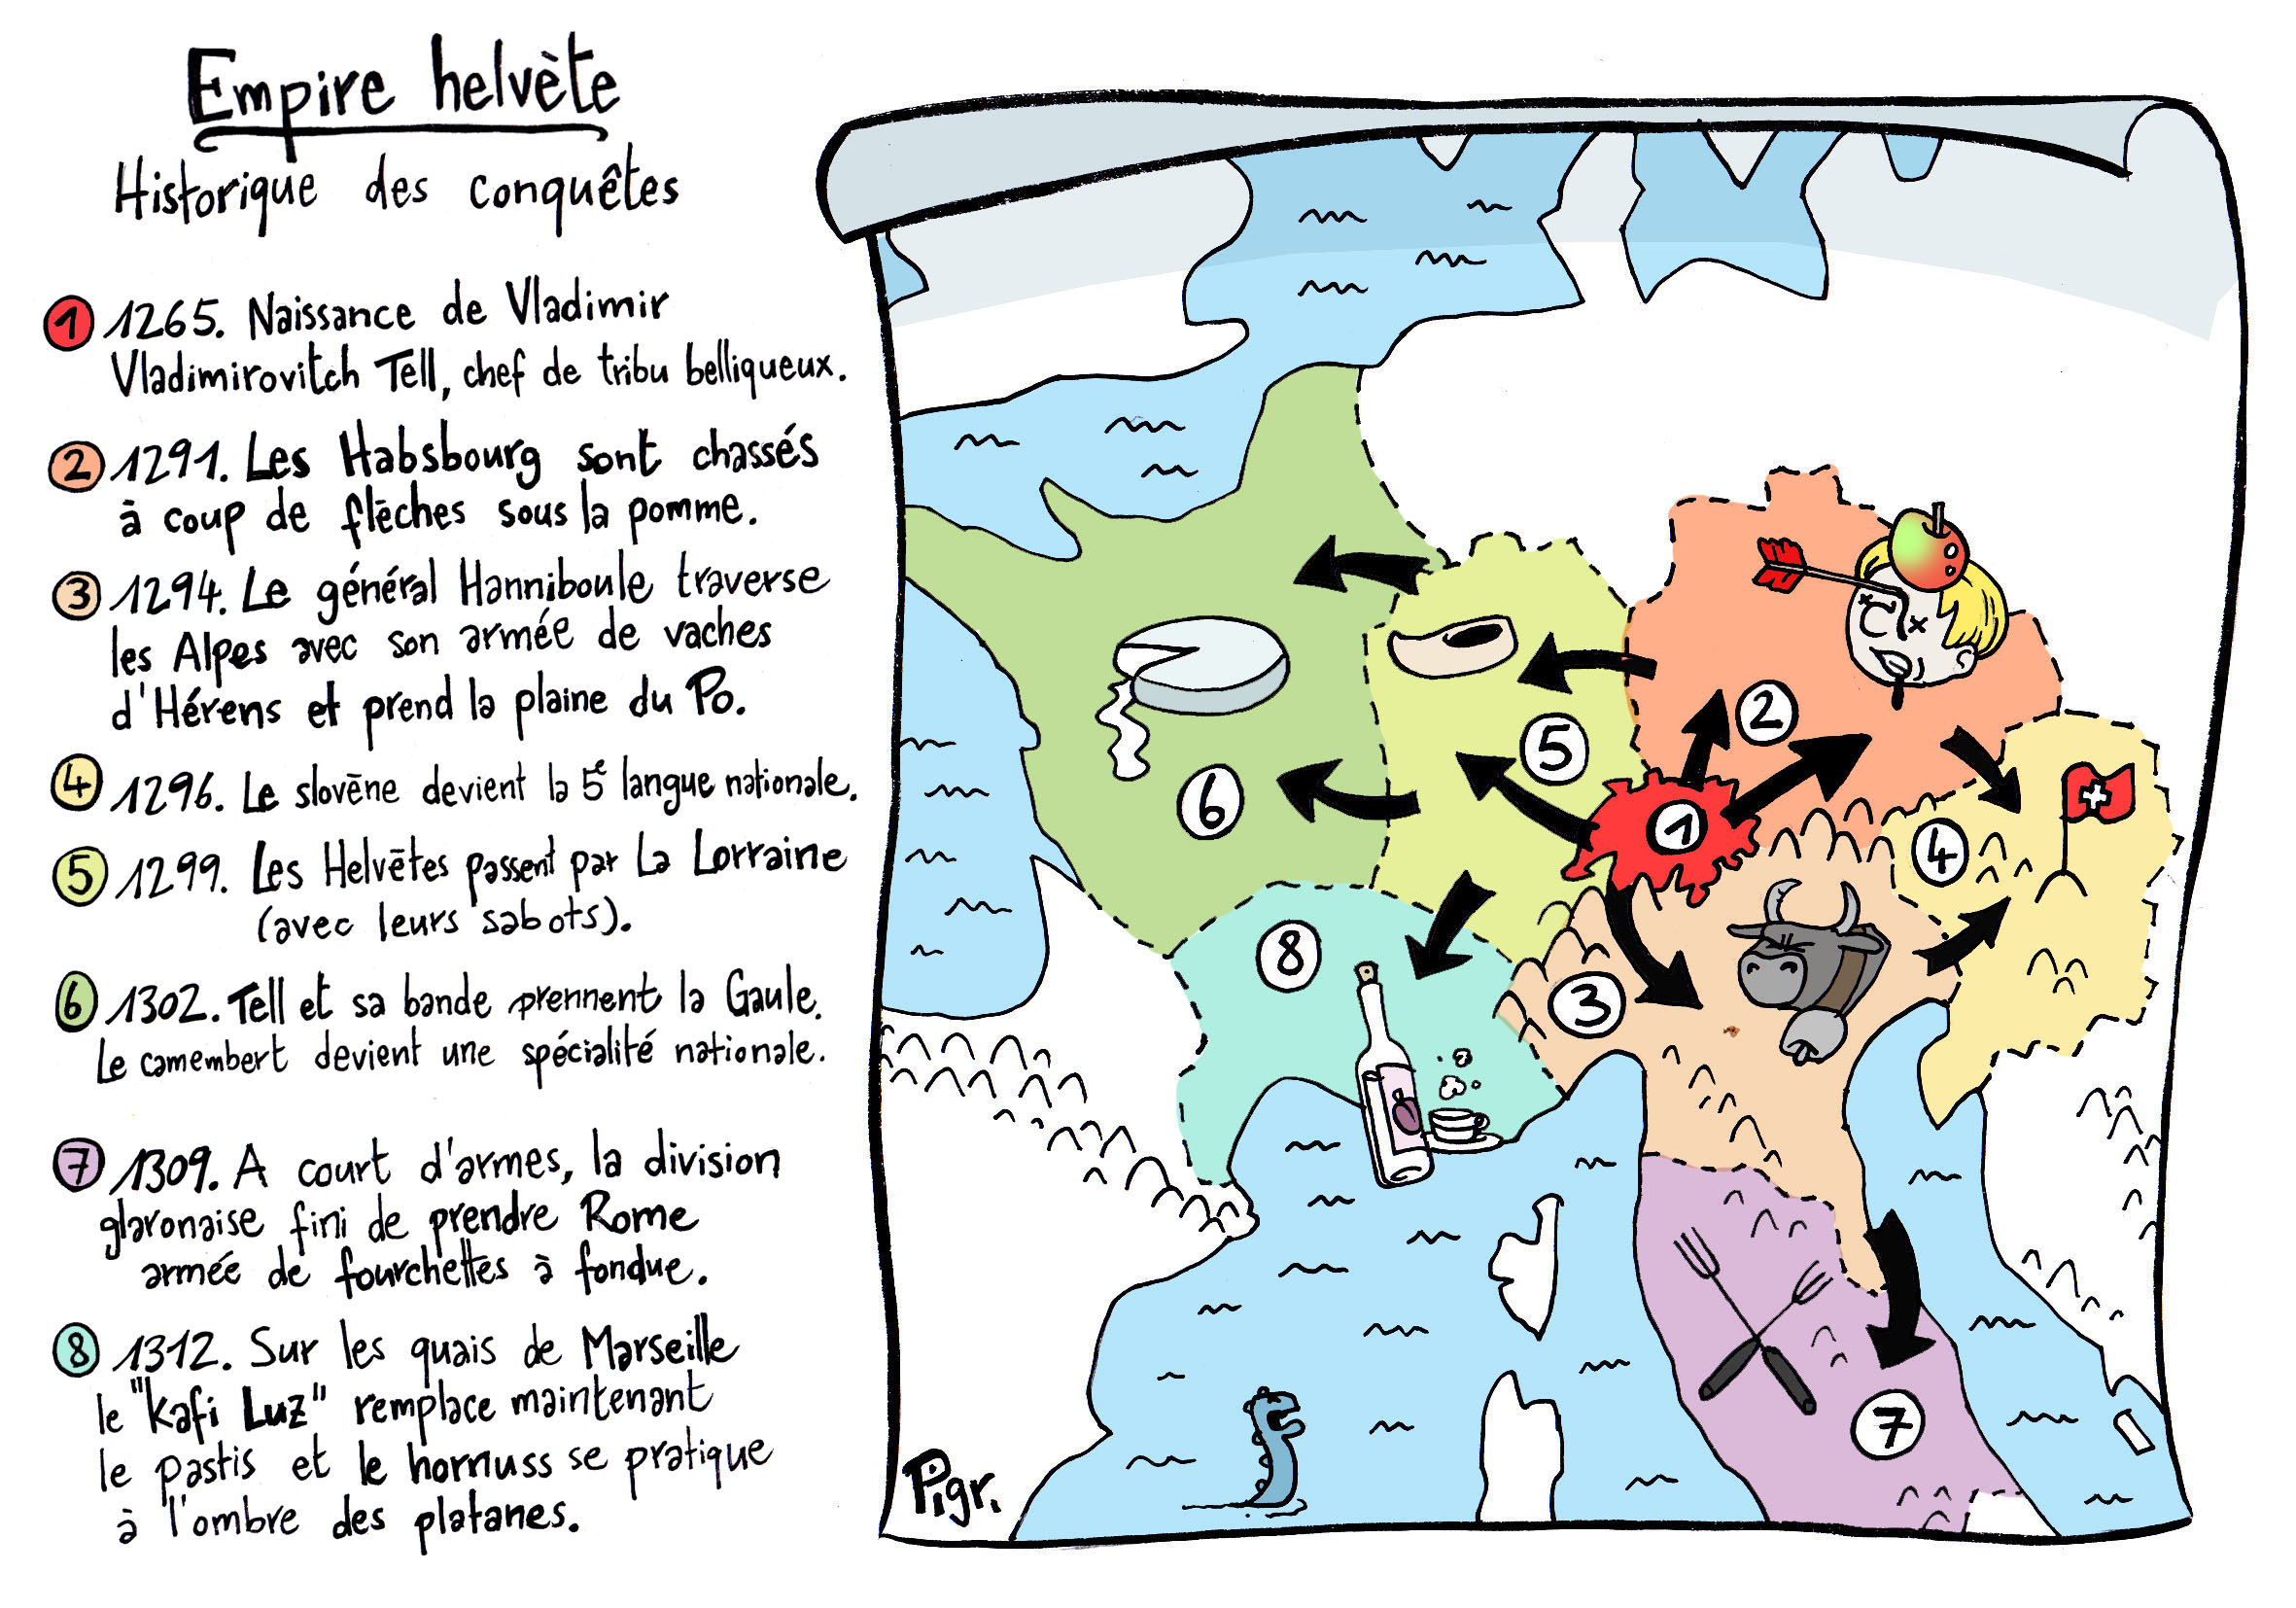 Empire helvète
Historique des conquêtes
1 1265. Naissance de Vladimir
Vladimirovitch Tell, chef de tribu belliqueux.
2 1291. Les Habsbourg sont chassés
à coup de flèches sous la pomme.
3 1294. Le général Hanniboule traverse
les Alpes avec son armée de vaches
d'Hérens et prend la plaine du Po.
4 1296. Le slovène devient la 5e langue nationale.
5 1299. Les Helvètes passent par La Lorraine
(avec leurs sabots).
6 1302. Tell et sa bande prennent la Gaule.
Le camembert devient une spécialité nationale.
7 1309. A court d'armes, la division
glaronaise fini de prendre Rome
armée de fourchettes à fondue.
8 1312. Sur les quais de Marseille
le "Kafi Luz" remplace maintenant
le pastis et le hornuss se pratique
à l'ombre des platanes.
2
5
6
1
4
8
3
7
Pigr.